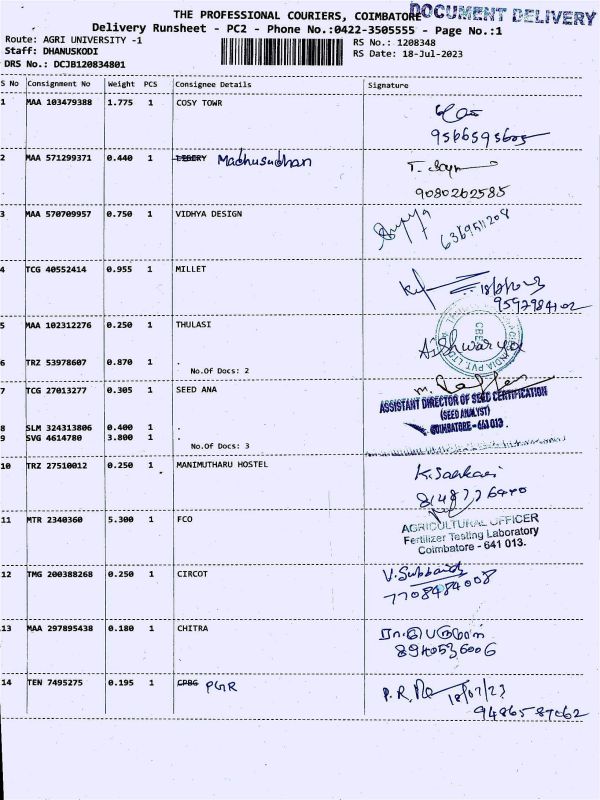 THE PROFESSIONAL COURIERS, COIMBATORE
DOCUMENT DELIVERY
Delivery Runsheet - PC2 - Phone No.:0422-3505555 - Page No.:1
Route: AGRI UNIVERSITY -1
RS No.: 1208348
Staff: DHANUSKODI
RS Date: 18-Jul-2023
DRS No.: DCJB120834801
S No Consignment No Weight PCS Consignee Details Signature
1 MAA 103479388 1.775 1 COSY TOWR
2 MAA 571299371 0.440 1 Madhusudhan
T.
9080262585
3 MAA 570709957 0.750 1 VIDHYA DESIGN
6369511208
4 TCG 40552414 0.955 1 MILLET
9597984102
5 MAA 102312276 0.250 1 THULASI
Aishwarya
6 TRZ 53978607 0.870 1 .
No.Of Docs: 2
7 TCG 27013277 0.305 1 SEED ANA
ASSISTANT DIRECTOR OF SEED CERTIFICATION
(SEED ANALYST)
COIMBATORE - 641 013.
8 SLM 324313806 0.400 1 .
9 SVG 4614780 3.800 1 .
No.Of Docs: 3
10 TRZ 27510012 0.250 1 MANIMUTHARU HOSTEL
11 MTR 2340360 5.300 1 FCO
AGRICULTURAL OFFICER
Fertilizer Testing Laboratory
Coimbatore - 641 013.
12 TMG 200388268 0.250 1 CIRCOT
V.Subbaidh
7708484008
13 MAA 297895438 0.180 1 CHITRA
8940536006
14 TEN 7495275 0.195 1 CPBG PGR
P.R. 18/07/23
9486587062